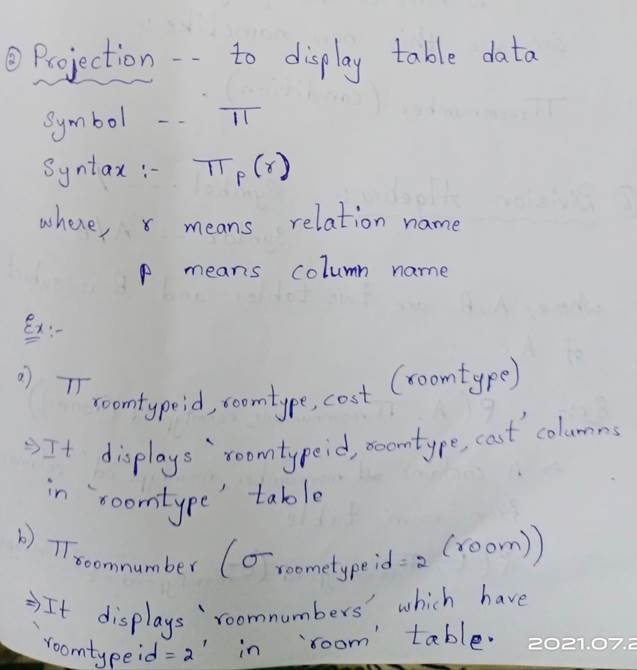 ② Projection -- to display table data
Symbol -- π
Syntax :- π p (r)
where, r means relation name
p means column name
Ex:-
a) π roomtypeid, roomtype, cost (roomtype)
⇒It displays 'roomtypeid, roomtype, cost' columns
in 'roomtype' table
b) π roomnumber (σ roometypeid = 2 (room))
⇒It displays 'roomnumbers' which have
'roomtypeid = 2' in 'room' table.
2021.07.2